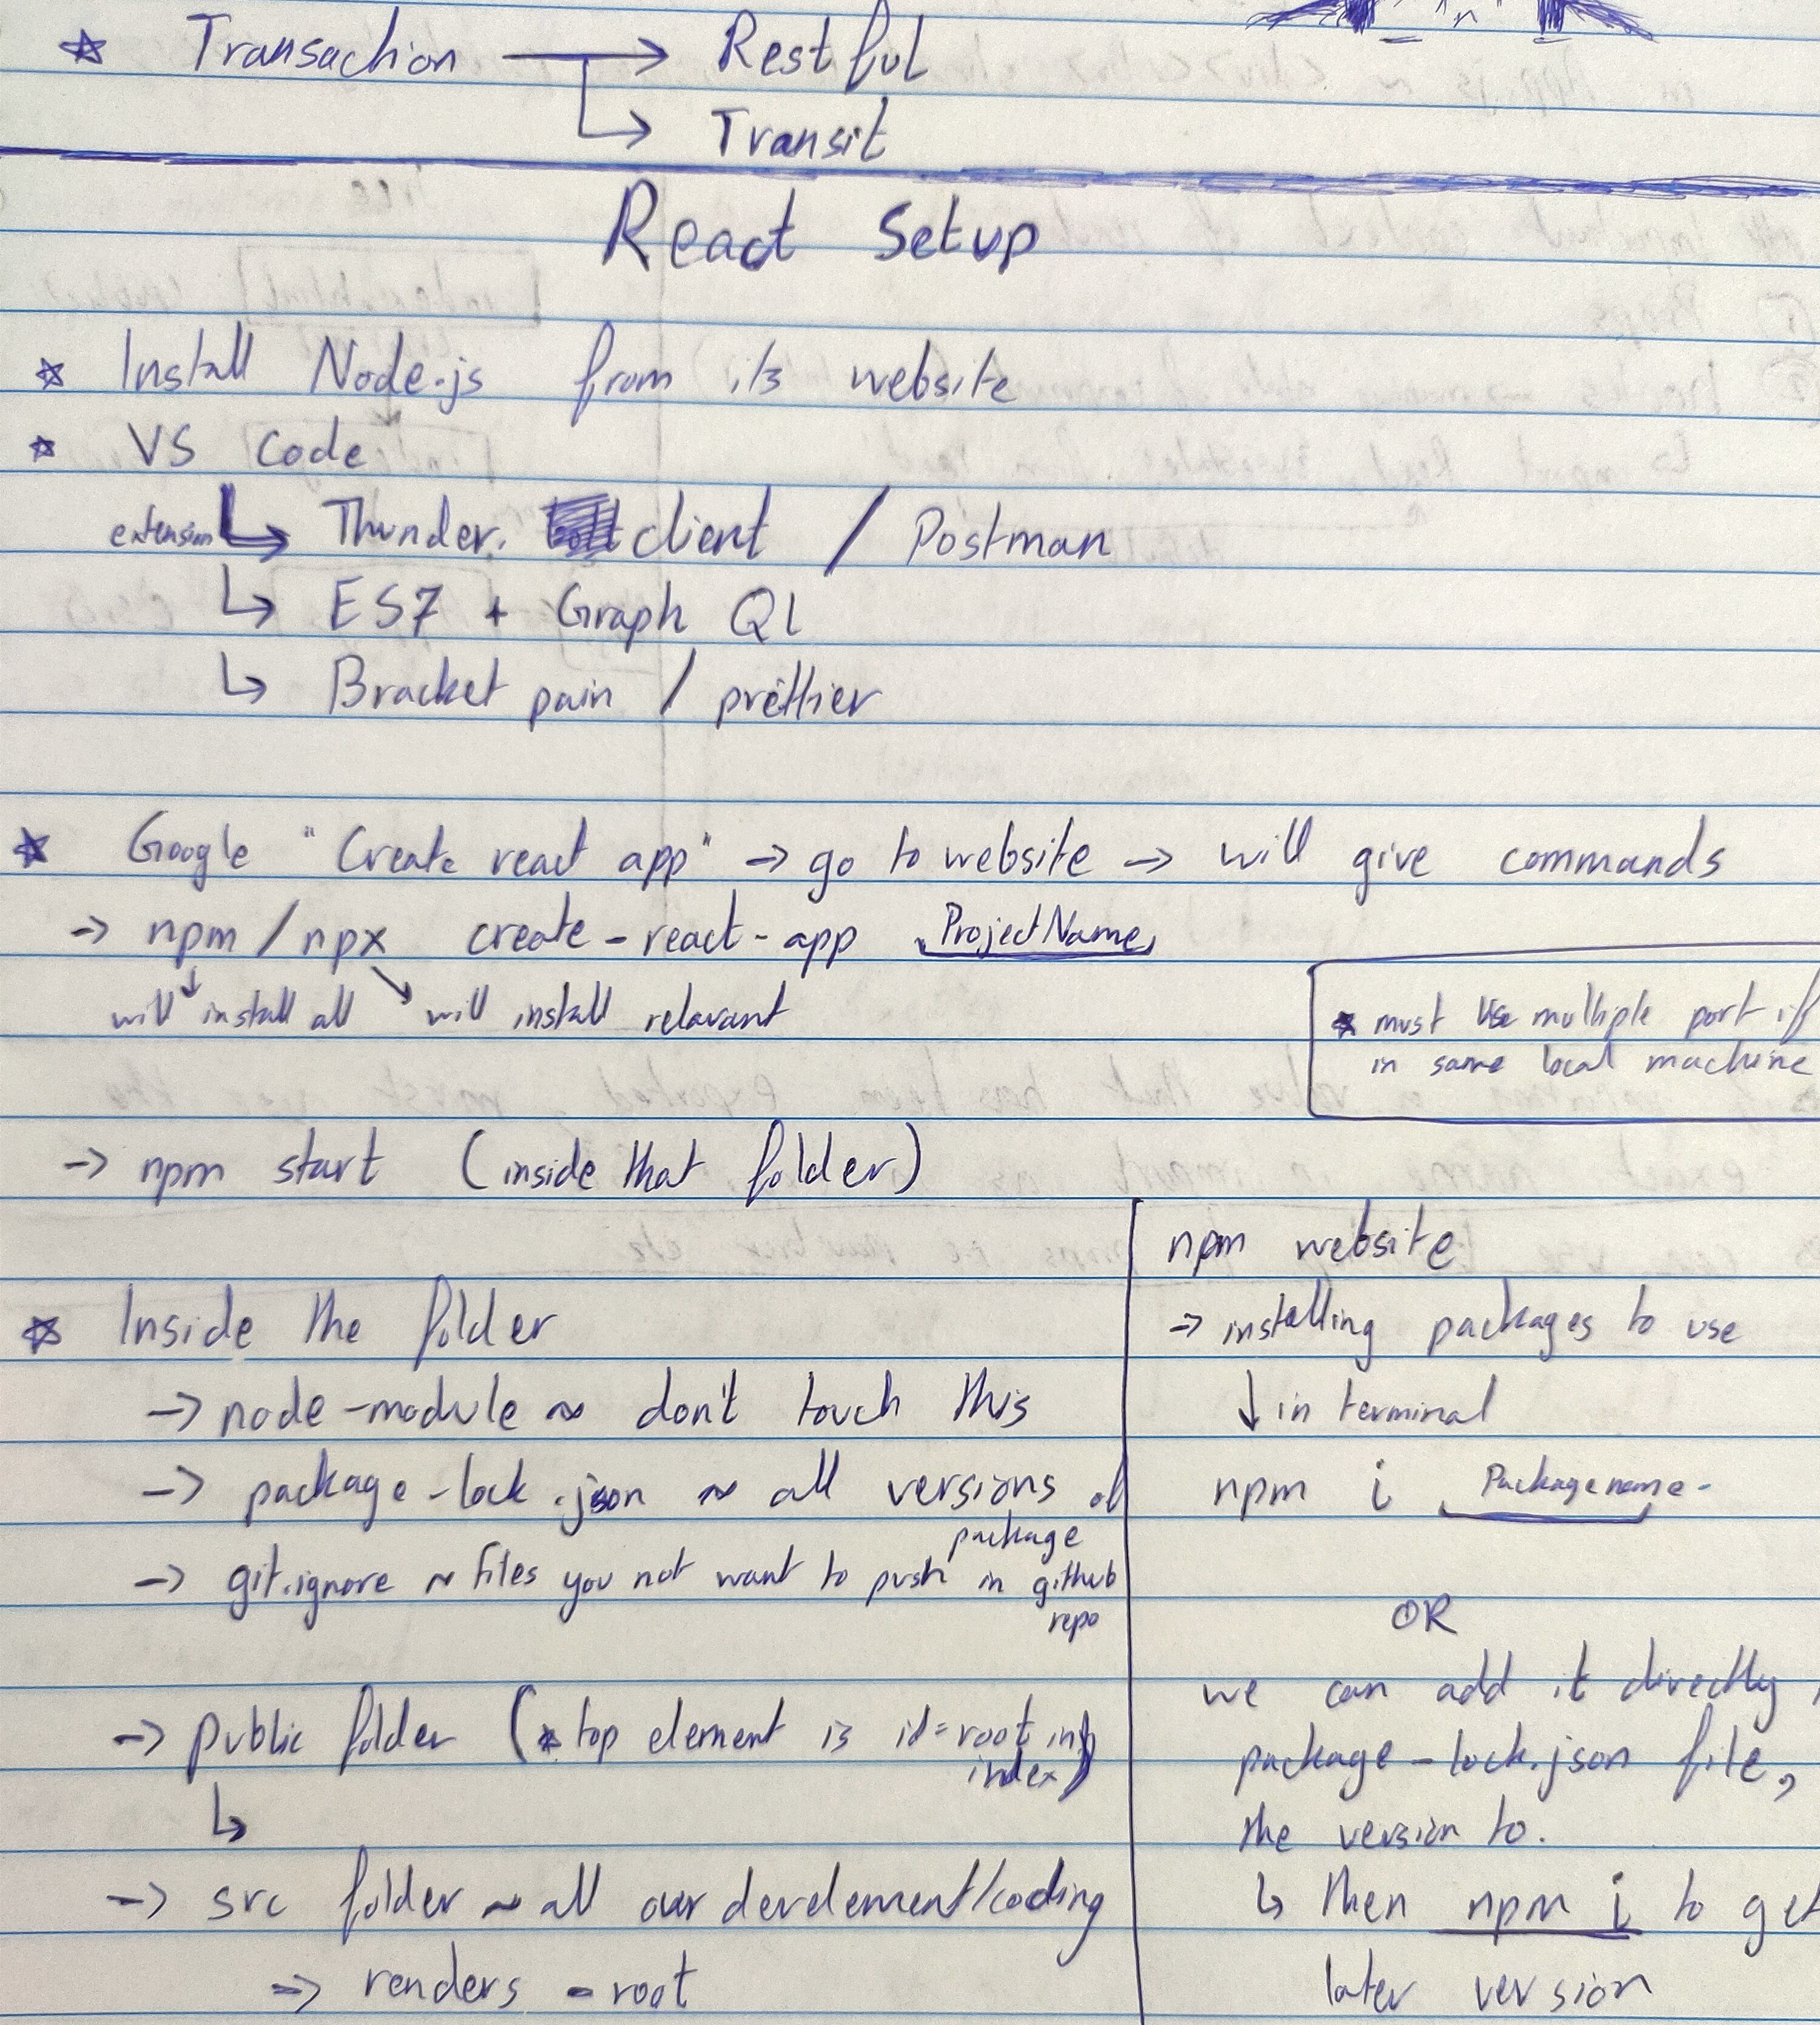 ☆ Transaction → Restful
↳ Transit
React Setup
☆ Install Node.js from its website
☆ VS Code
extension ↳ Thunder. client / Postman
↳ ES7 + Graph Ql
↳ Bracket pain / prettier
☆ Google "Create react app" → go to website → will give commands
→ npm / npx create-react-app ProjectName
will install all will install relavant
☆ must use multiple port if
in same local machine
→ npm start (inside that folder)
☆ Inside the folder
→ node-module ~ don't touch this
→ package-lock.json ~ all versions of
package
→ git.ignore ~ files you not want to push in github
repo
→ public folder (☆ top element is id=root in
index)
↳
→ src folder ~ all our develement/coding
⇒ renders - root
npm website
→ installing packages to use
↓ in terminal
npm i Packagename
OR
we can add it directly
package-lock.json file,
the version to.
↳ then npm i to get
later version